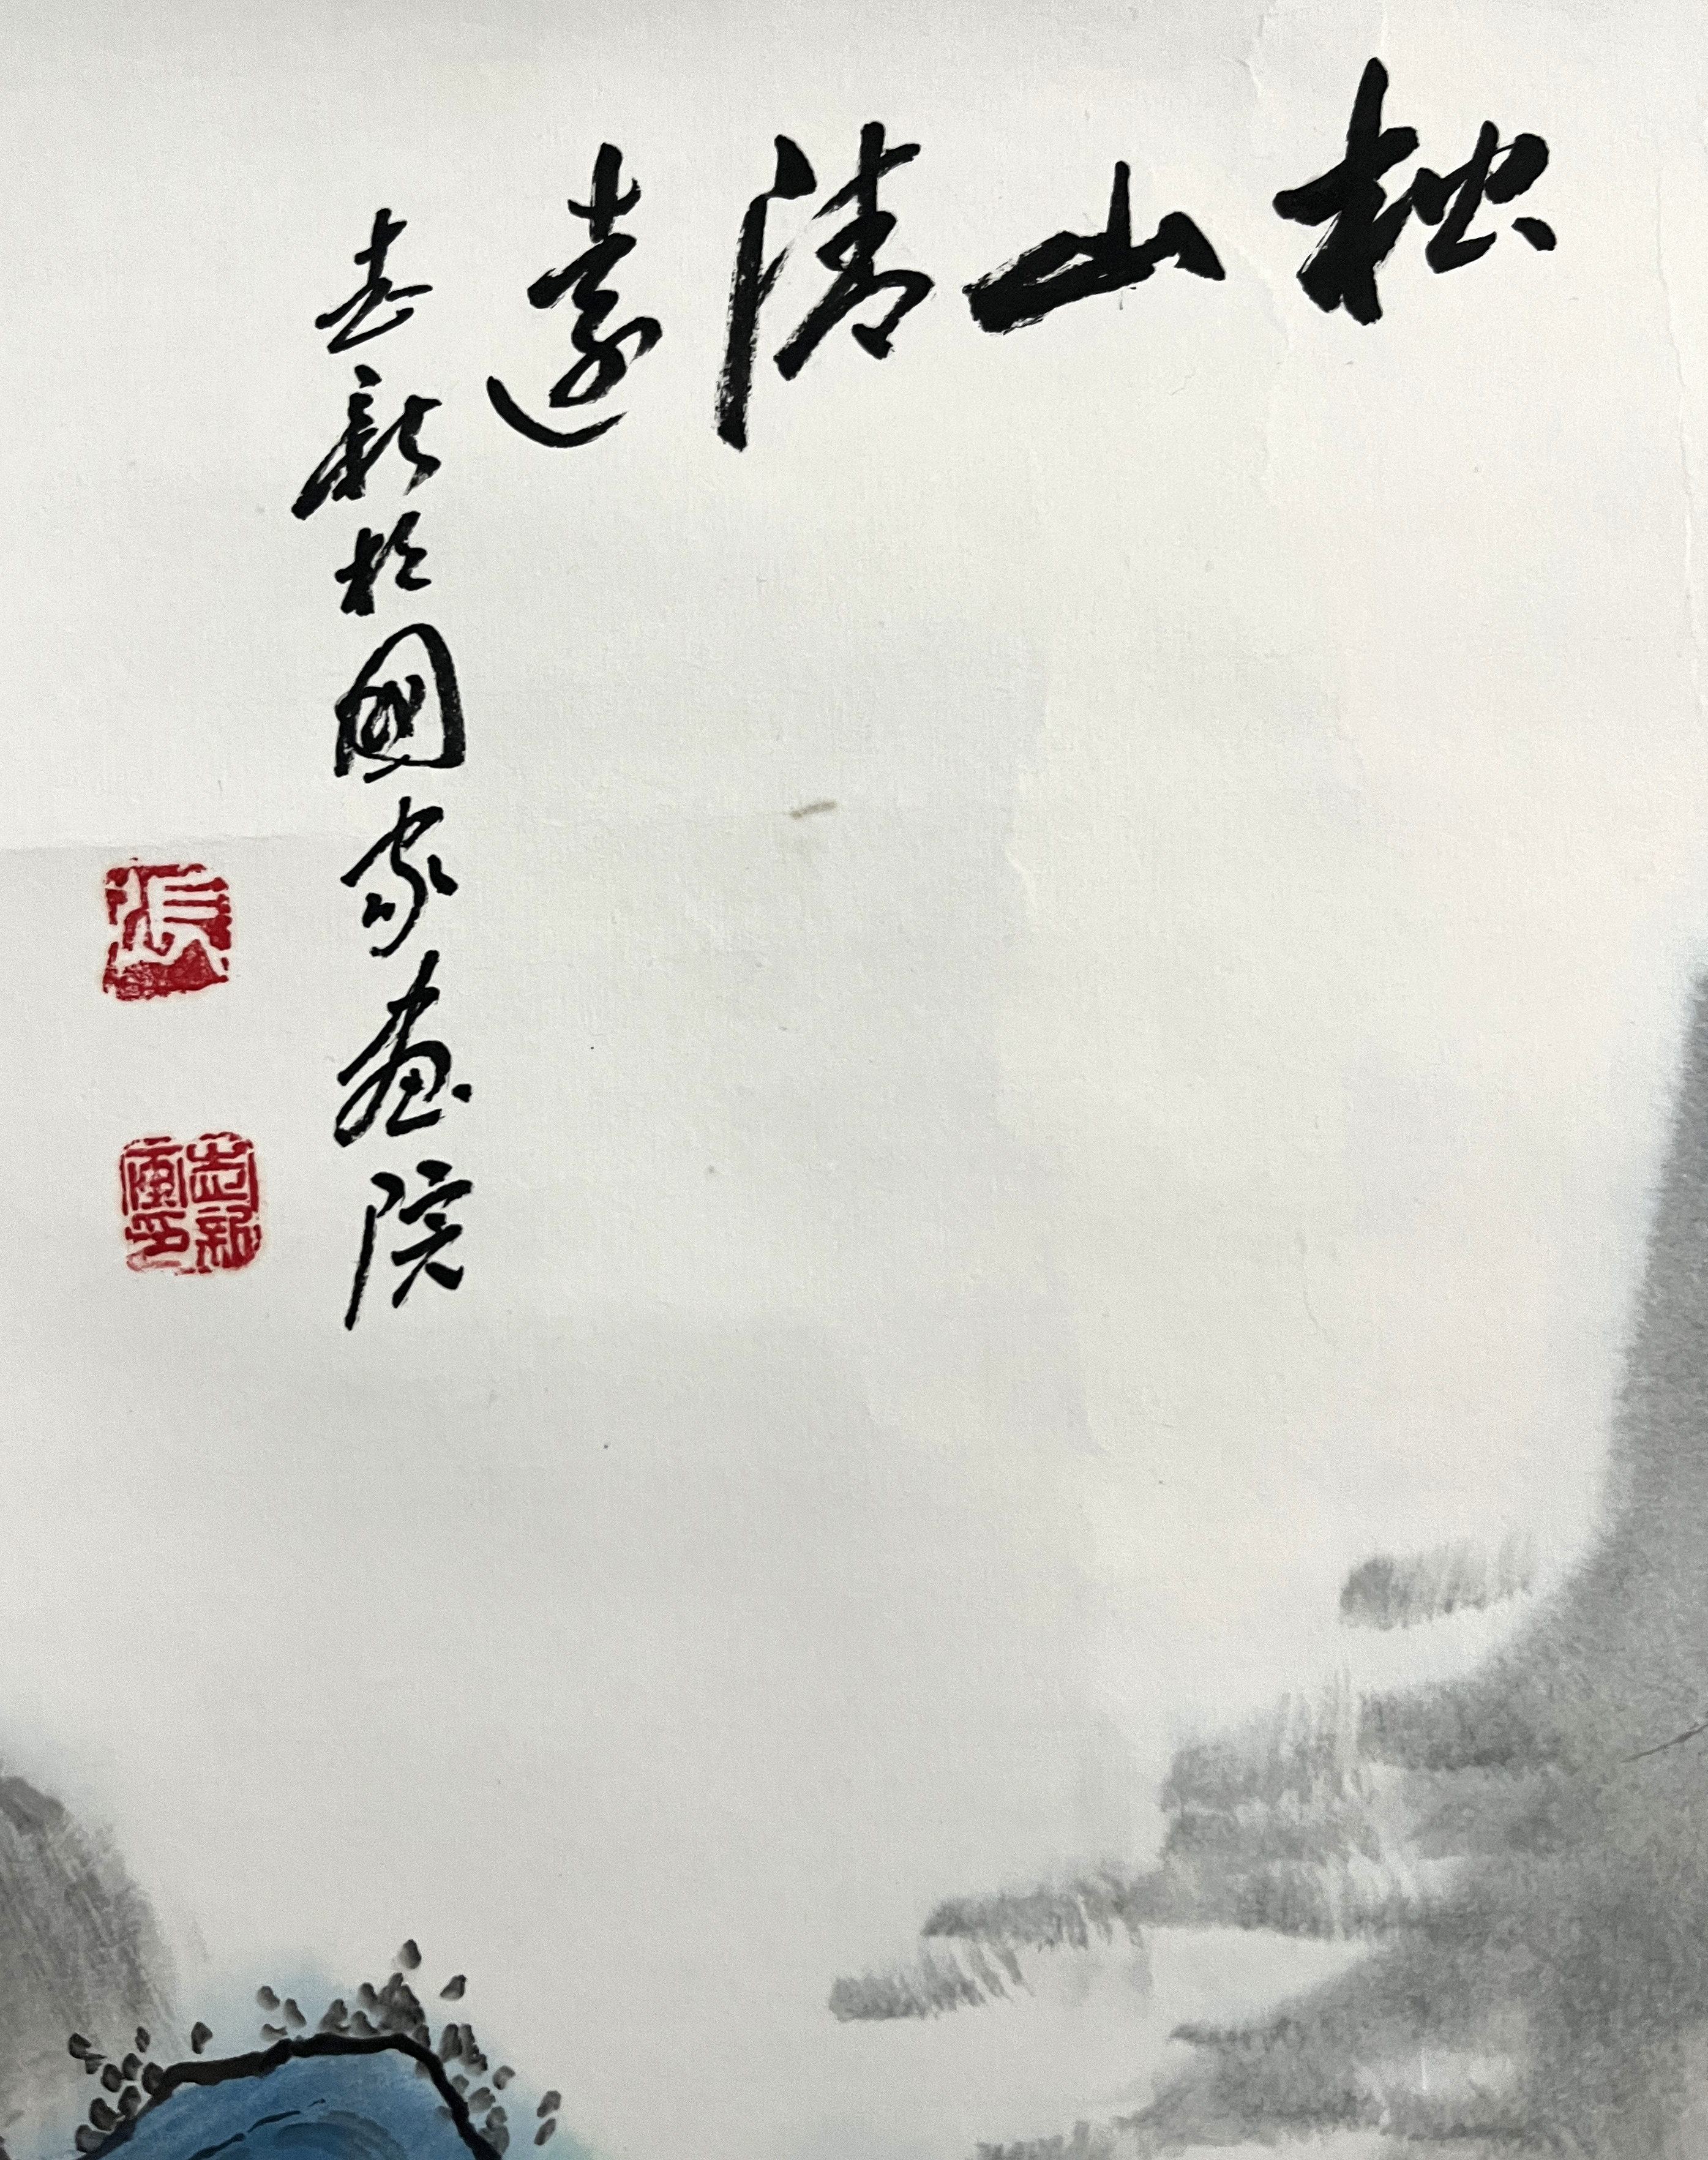 松山清遠
志新於國家畫院
張
志新